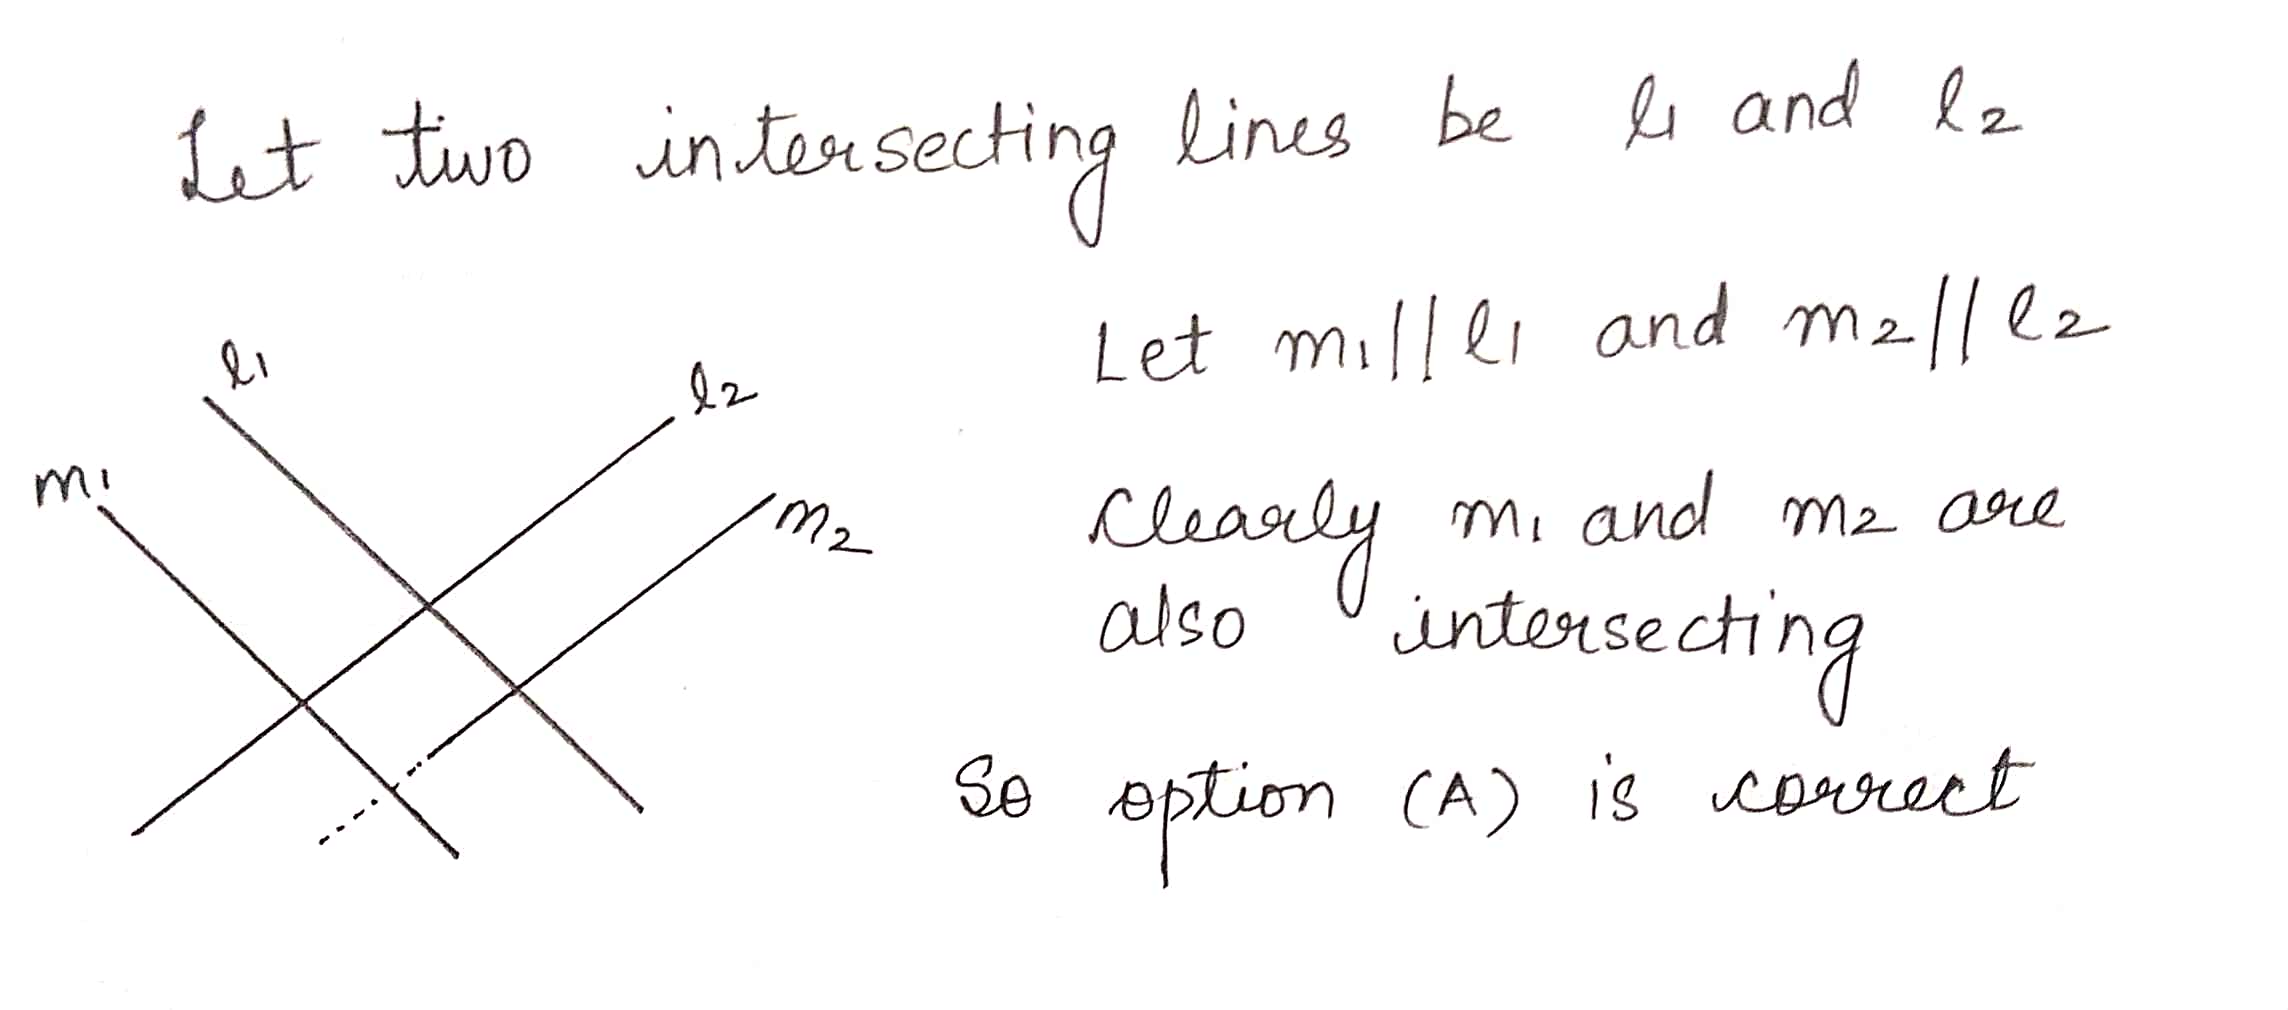 Let two intersecting lines be l1 and l2
Let m1 || l1 and m2 || l2
l1
l2
m1
m2
Clearly m1 and m2 are
also intersecting
So option (A) is correct